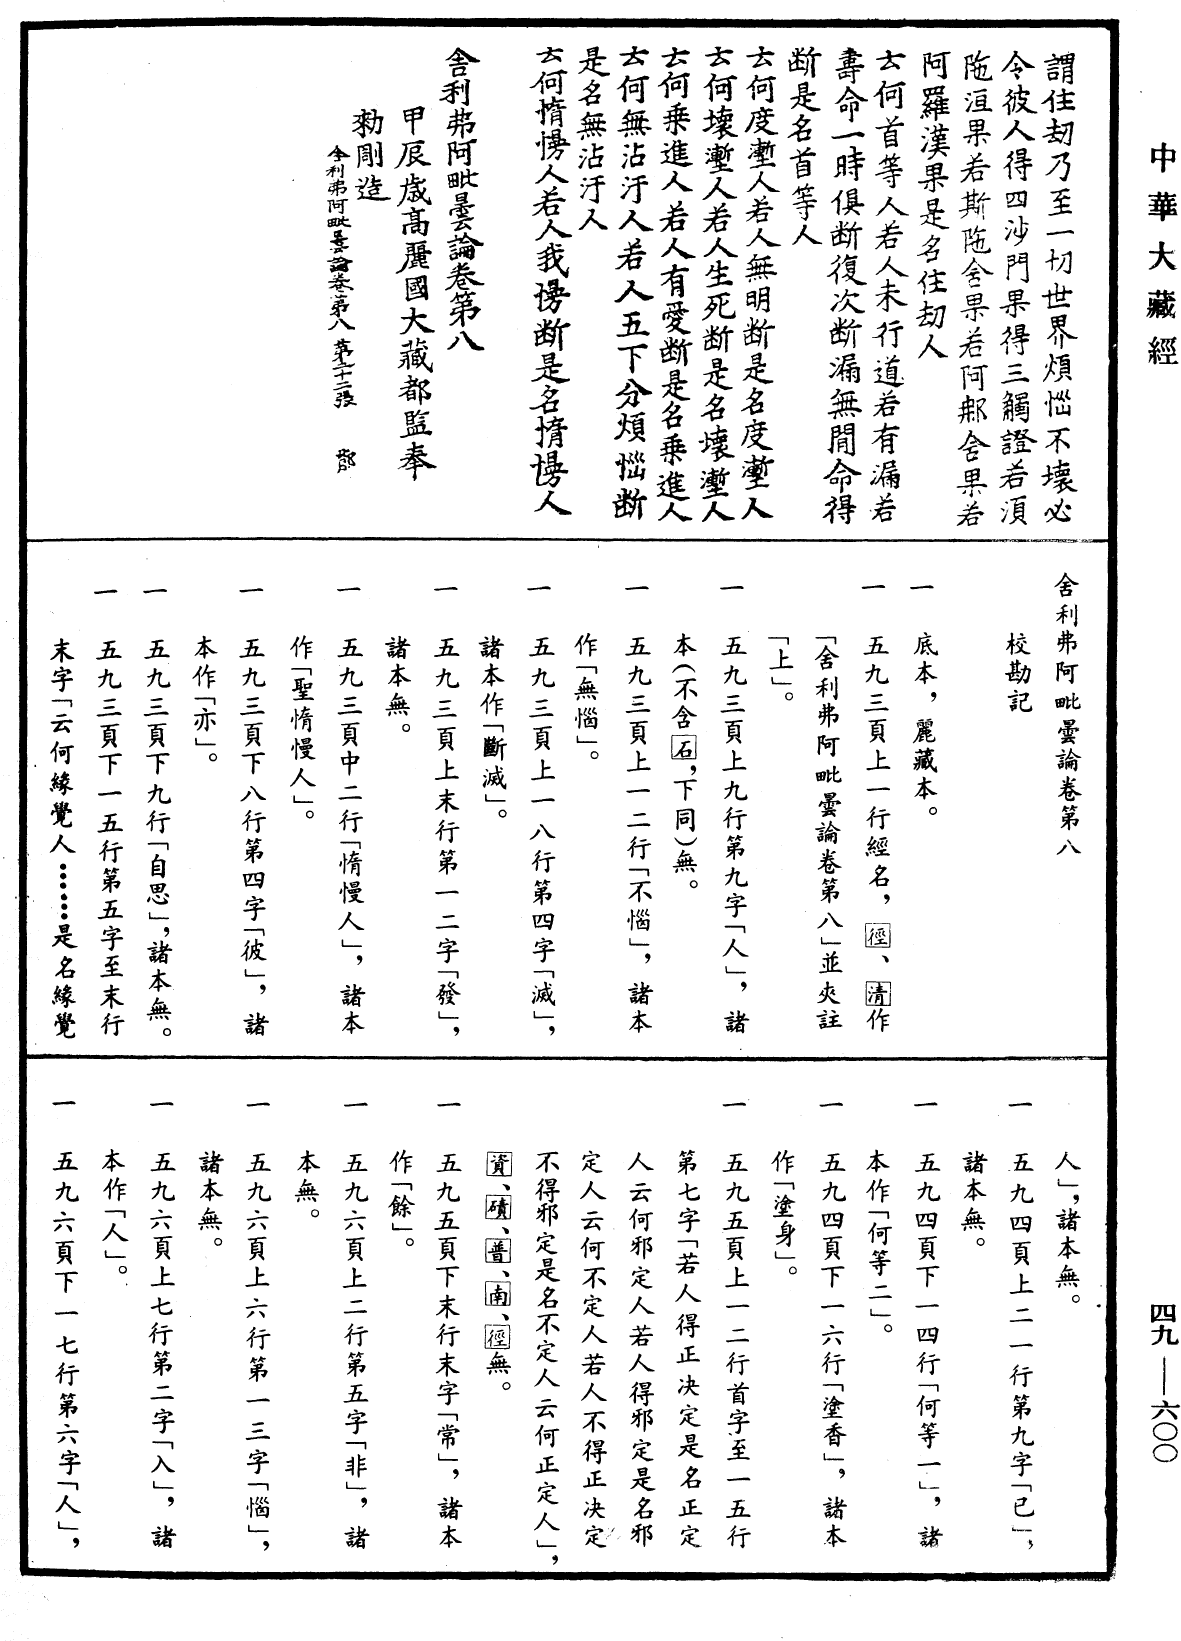 中華大藏經
謂住劫乃至一切世界煩惱不壞必
令彼人得四沙門果得三觸證若須
陁洹果若斯陁含果若阿那含果若
阿羅漢果是名住劫人
云何首等人若人未行道若有漏若
壽命一時俱断復次断漏無閒命得
断是名首等人
云何度壍人若人無明断是名度壍人
云何壞壍人若人生死断是名壞壍人
云何乗進人若人有愛断是名乗進人
云何無沾汙人若人五下分煩惱断
是名無沾汙人
云何惰慢人若人我慢断是名惰慢人
舎利弗阿毗曇論卷第八
甲辰歳高麗國大藏都監奉
勑彫造
舎利弗阿毗曇論卷第八 第二十二張
舍利弗阿毗曇論卷第八
校勘記
一 底本，麗藏本。
一 五九三頁上一行經名，徑、清作
「舍利弗阿毗曇論卷第八」並夾註
「上」。
一 五九三頁上九行第九字「人」，諸
本（不含石，下同）無。
一 五九三頁上一二行「不惱」，諸本
作「無惱」。
一 五九三頁上一八行第四字「滅」，
諸本作「斷滅」。
一 五九三頁上末行第一二字「發」，
諸本無。
一 五九三頁中二行「惰慢人」，諸本
作「聖惰慢人」。
一 五九三頁下八行第四字「彼」，諸
本作「亦」。
一 五九三頁下九行「自思」，諸本無。
一 五九三頁下一五行第五字至末行
末字「云何緣覺人……是名緣覺
人」，諸本無。
一 五九四頁上二一行第九字「已」，
諸本無。
一 五九四頁下一四行「何等一」，諸
本作「何等二」。
一 五九四頁下一六行「塗香」，諸本
作「塗身」。
一 五九五頁上一二行首字至一五行
第七字「若人得正决定是名正定
人云何邪定人若人得邪定是名邪
定人云何不定人若人不得正决定
不得邪定是名不定人云何正定人」，
資、磧、普、南、徑無。
一 五九五頁下末行末字「常」，諸本
作「餘」。
一 五九六頁上二行第五字「非」，諸
本無。
一 五九六頁上六行第一三字「惱」，
諸本無。
一 五九六頁上七行第二字「入」，諸
本作「人」。
一 五九六頁下一七行第六字「人」，
四九—六〇〇